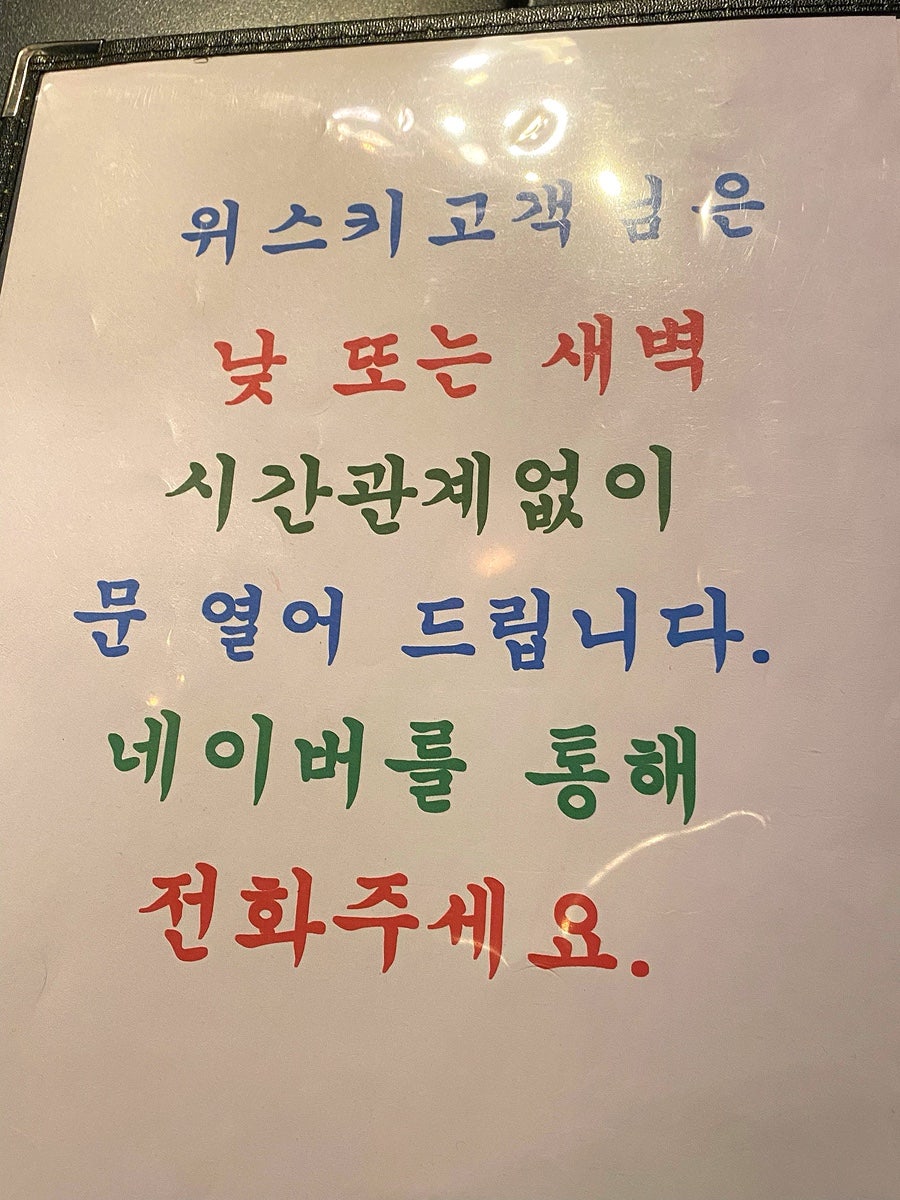 위스키고객 님은
낮 또는 새벽
시간관계없이
문 열어 드립니다.
네이버를 통해
전화주세요.